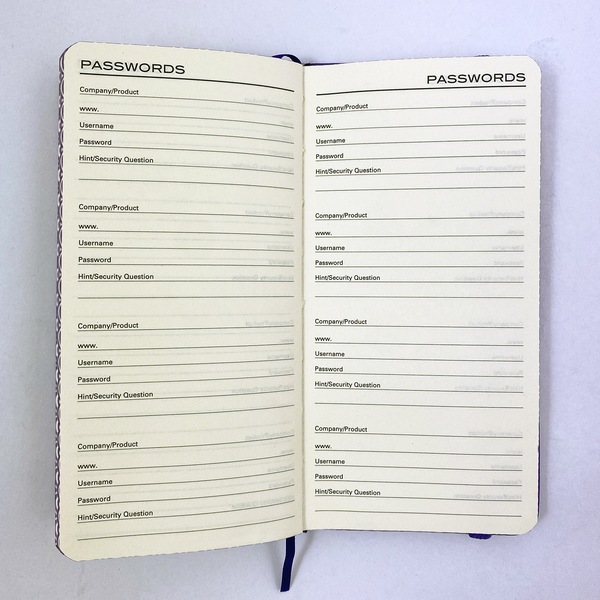 PASSWORDS
Company/Product
www.
Username
Password
Hint/Security Question
Company/Product
www.
Username
Password
Hint/Security Question
Company/Product
www.
Username
Password
Hint/Security Question
Company/Product
www.
Username
Password
Hint/Security Question
PASSWORDS
Company/Product
www.
Username
Password
Hint/Security Question
Company/Product
www.
Username
Password
Hint/Security Question
Company/Product
www.
Username
Password
Hint/Security Question
Company/Product
www.
Username
Password
Hint/Security Question